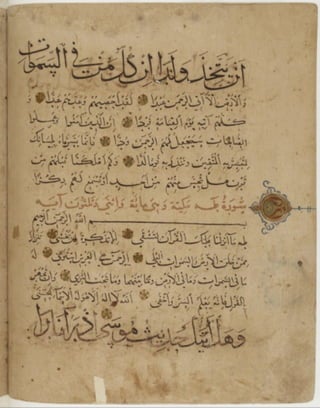 أَن يَتَّخِذَ وَلَدًا إِن كُلُّ مَن فِي السَّمٰوَاتِ
وَالْأَرْضِ إِلَّا آتِي الرَّحْمٰنِ عَبْدًا لَقَدْ أَحْصٰيهُمْ وَعَدَّهُمْ عَدًّا وَ
كُلُّهُمْ آتِيهِ يَوْمَ الْقِيَامَةِ فَرْدًا إِنَّ الَّذِينَ آمَنُوا وَعَمِلُوا
الصَّالِحَاتِ سَيَجْعَلُ لَهُمُ الرَّحْمٰنُ وُدًّا فَإِنَّمَا يَسَّرْنَاهُ بِلِسَانِكَ
لِتُبَشِّرَ بِهِ الْمُتَّقِينَ وَتُنذِرَ بِهِ قَوْمًا لُدًّا وَكَمْ أَهْلَكْنَا قَبْلَهُمْ مِن
قَرْنٍ هَلْ تُحِسُّ مِنْهُمْ مِنْ أَحَدٍ أَوْ تَسْمَعُ لَهُمْ رِكْزًا
سورة طه مكية وهي مائة واثنى وثلثون آية
بسم الله الرحمن الرحيم
طه مَا أَنزَلْنَا عَلَيْكَ الْقُرْآنَ لِتَشْقَى إِلَّا تَذْكِرَةً لِمَن يَخْشَى تَنزِيلًا
مِمَّنْ خَلَقَ الْأَرْضَ وَالسَّمٰوَاتِ الْعُلَى الرَّحْمٰنُ عَلَى الْعَرْشِ اسْتَوَى لَهُ
مَا فِي السَّمٰوَاتِ وَمَا فِي الْأَرْضِ وَمَا بَيْنَهُمَا وَمَا تَحْتَ الثَّرَى وَإِن تَجْهَرْ
بِالْقَوْلِ فَإِنَّهُ يَعْلَمُ السِّرَّ وَأَخْفَى اللَّهُ لَا إِلٰهَ إِلَّا هُوَ لَهُ الْأَسْمَاءُ الْحُسْنَى
وَهَلْ أَتٰيكَ حَدِيثُ مُوسَى إِذْ رَأَى نَارًا